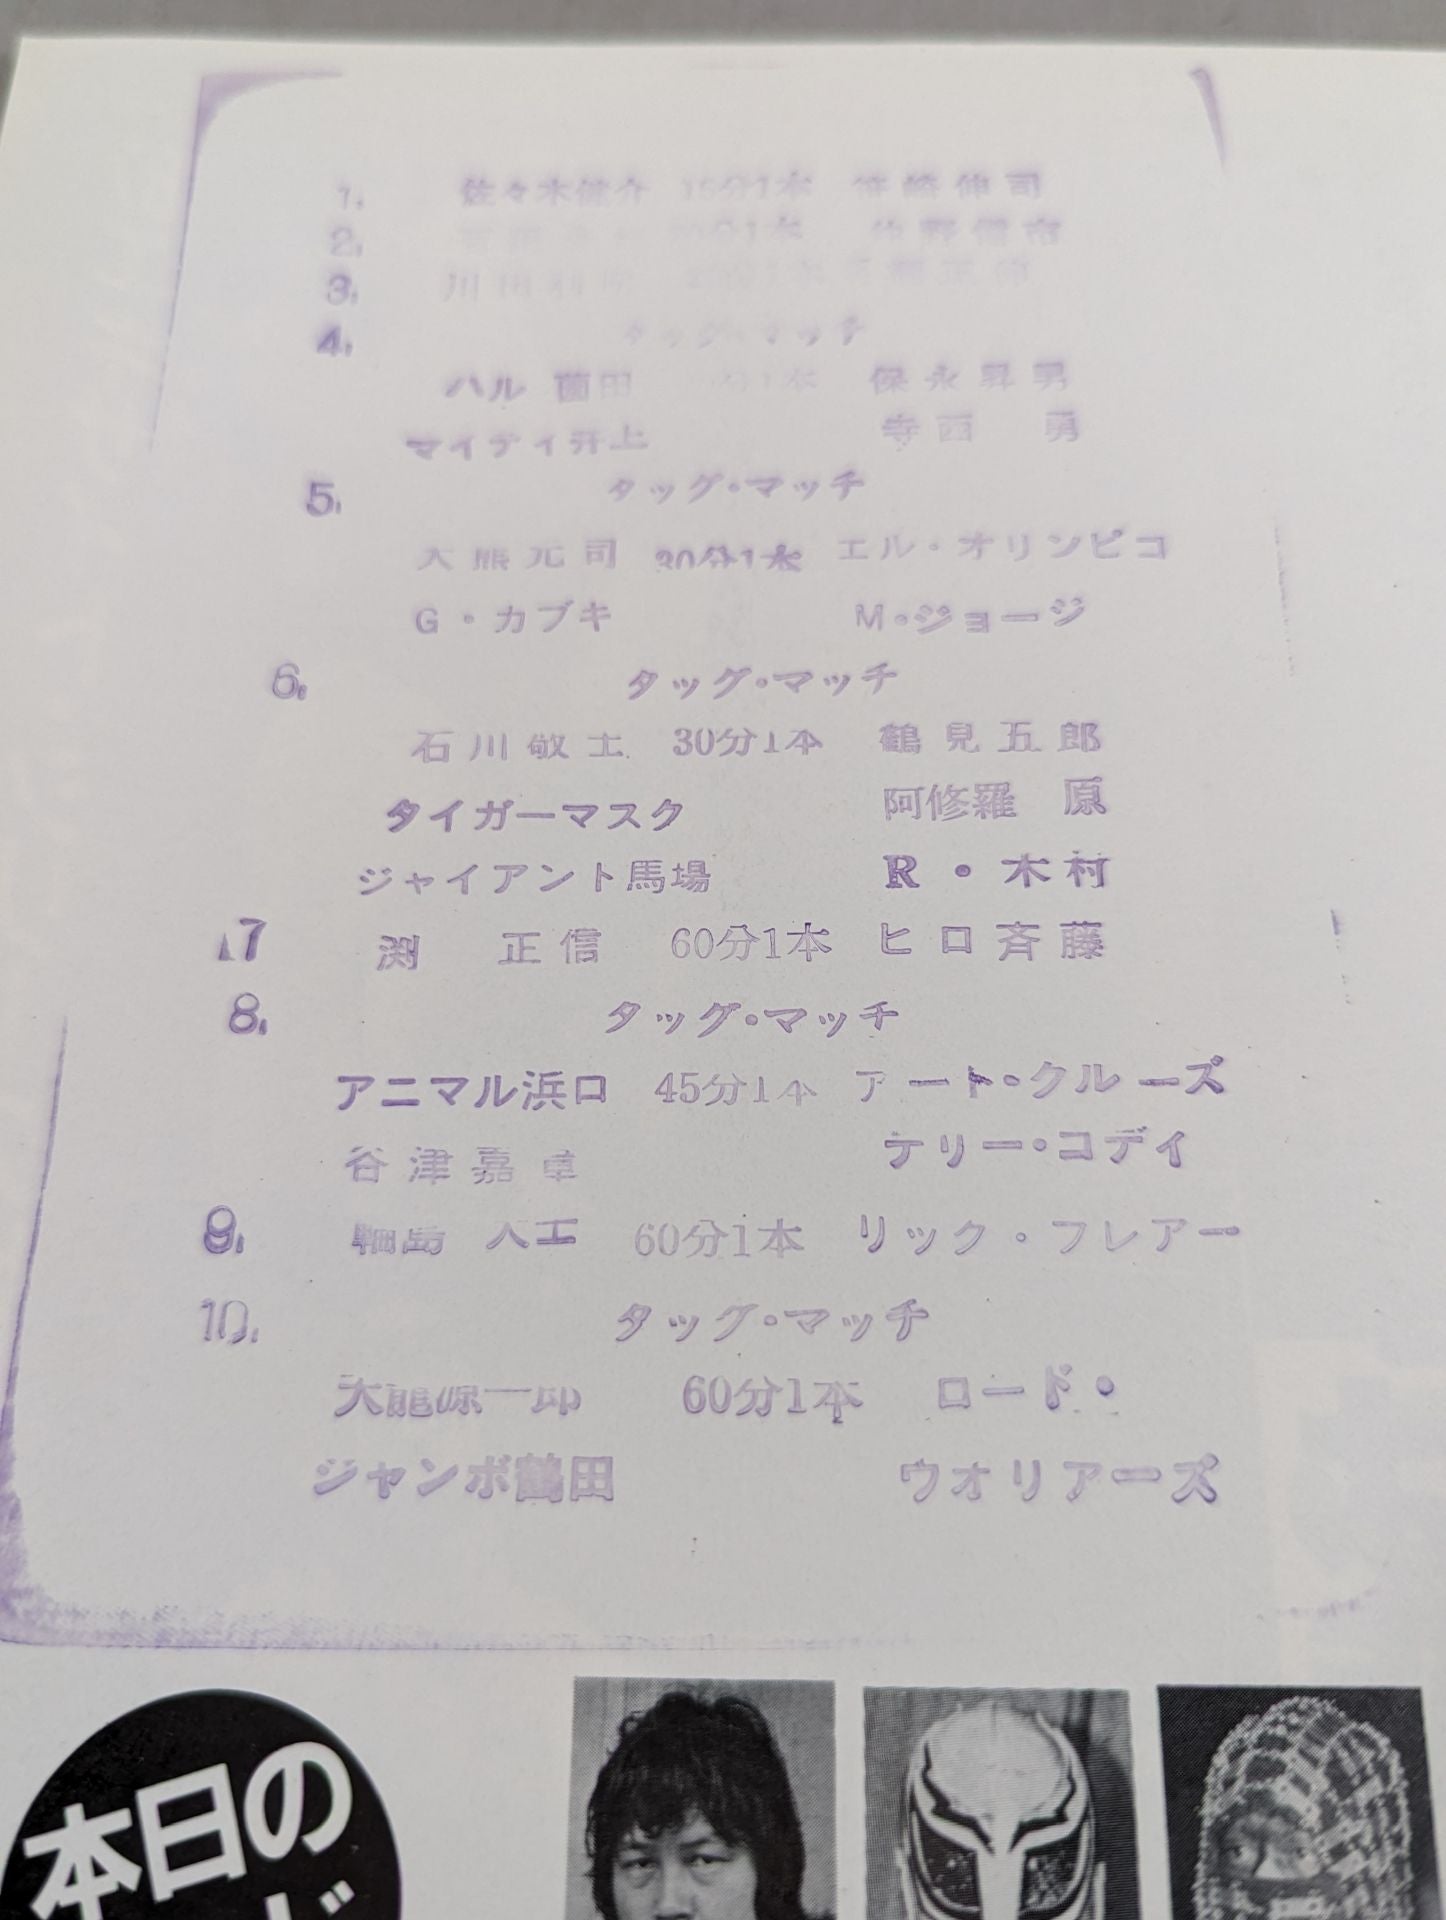 1. 佐々木健介 15分1本 笹崎伸司
2. 分1本 佐野直喜
3. 川田利明
4. タッグ・マッチ
ハル 薗田 分1本 保永昇男
マイティ井上 寺西 勇
5. タッグ・マッチ
大熊元司 30分1本 エル・オリンピコ
G・カブキ M・ジョージ
6. タッグ・マッチ
石川敬士 30分1本 鶴見五郎
タイガーマスク 阿修羅 原
ジャイアント馬場 R・木村
7 渕 正信 60分1本 ヒロ斉藤
8. タッグ・マッチ
アニマル浜口 45分1本 アート・クルーズ
谷津嘉章 テリー・コデイ
9. 輪島 大士 60分1本 リック・フレアー
10. タッグ・マッチ
天龍源一郎 60分1本 ロード・
ジャンボ鶴田 ウオリアーズ
本日の